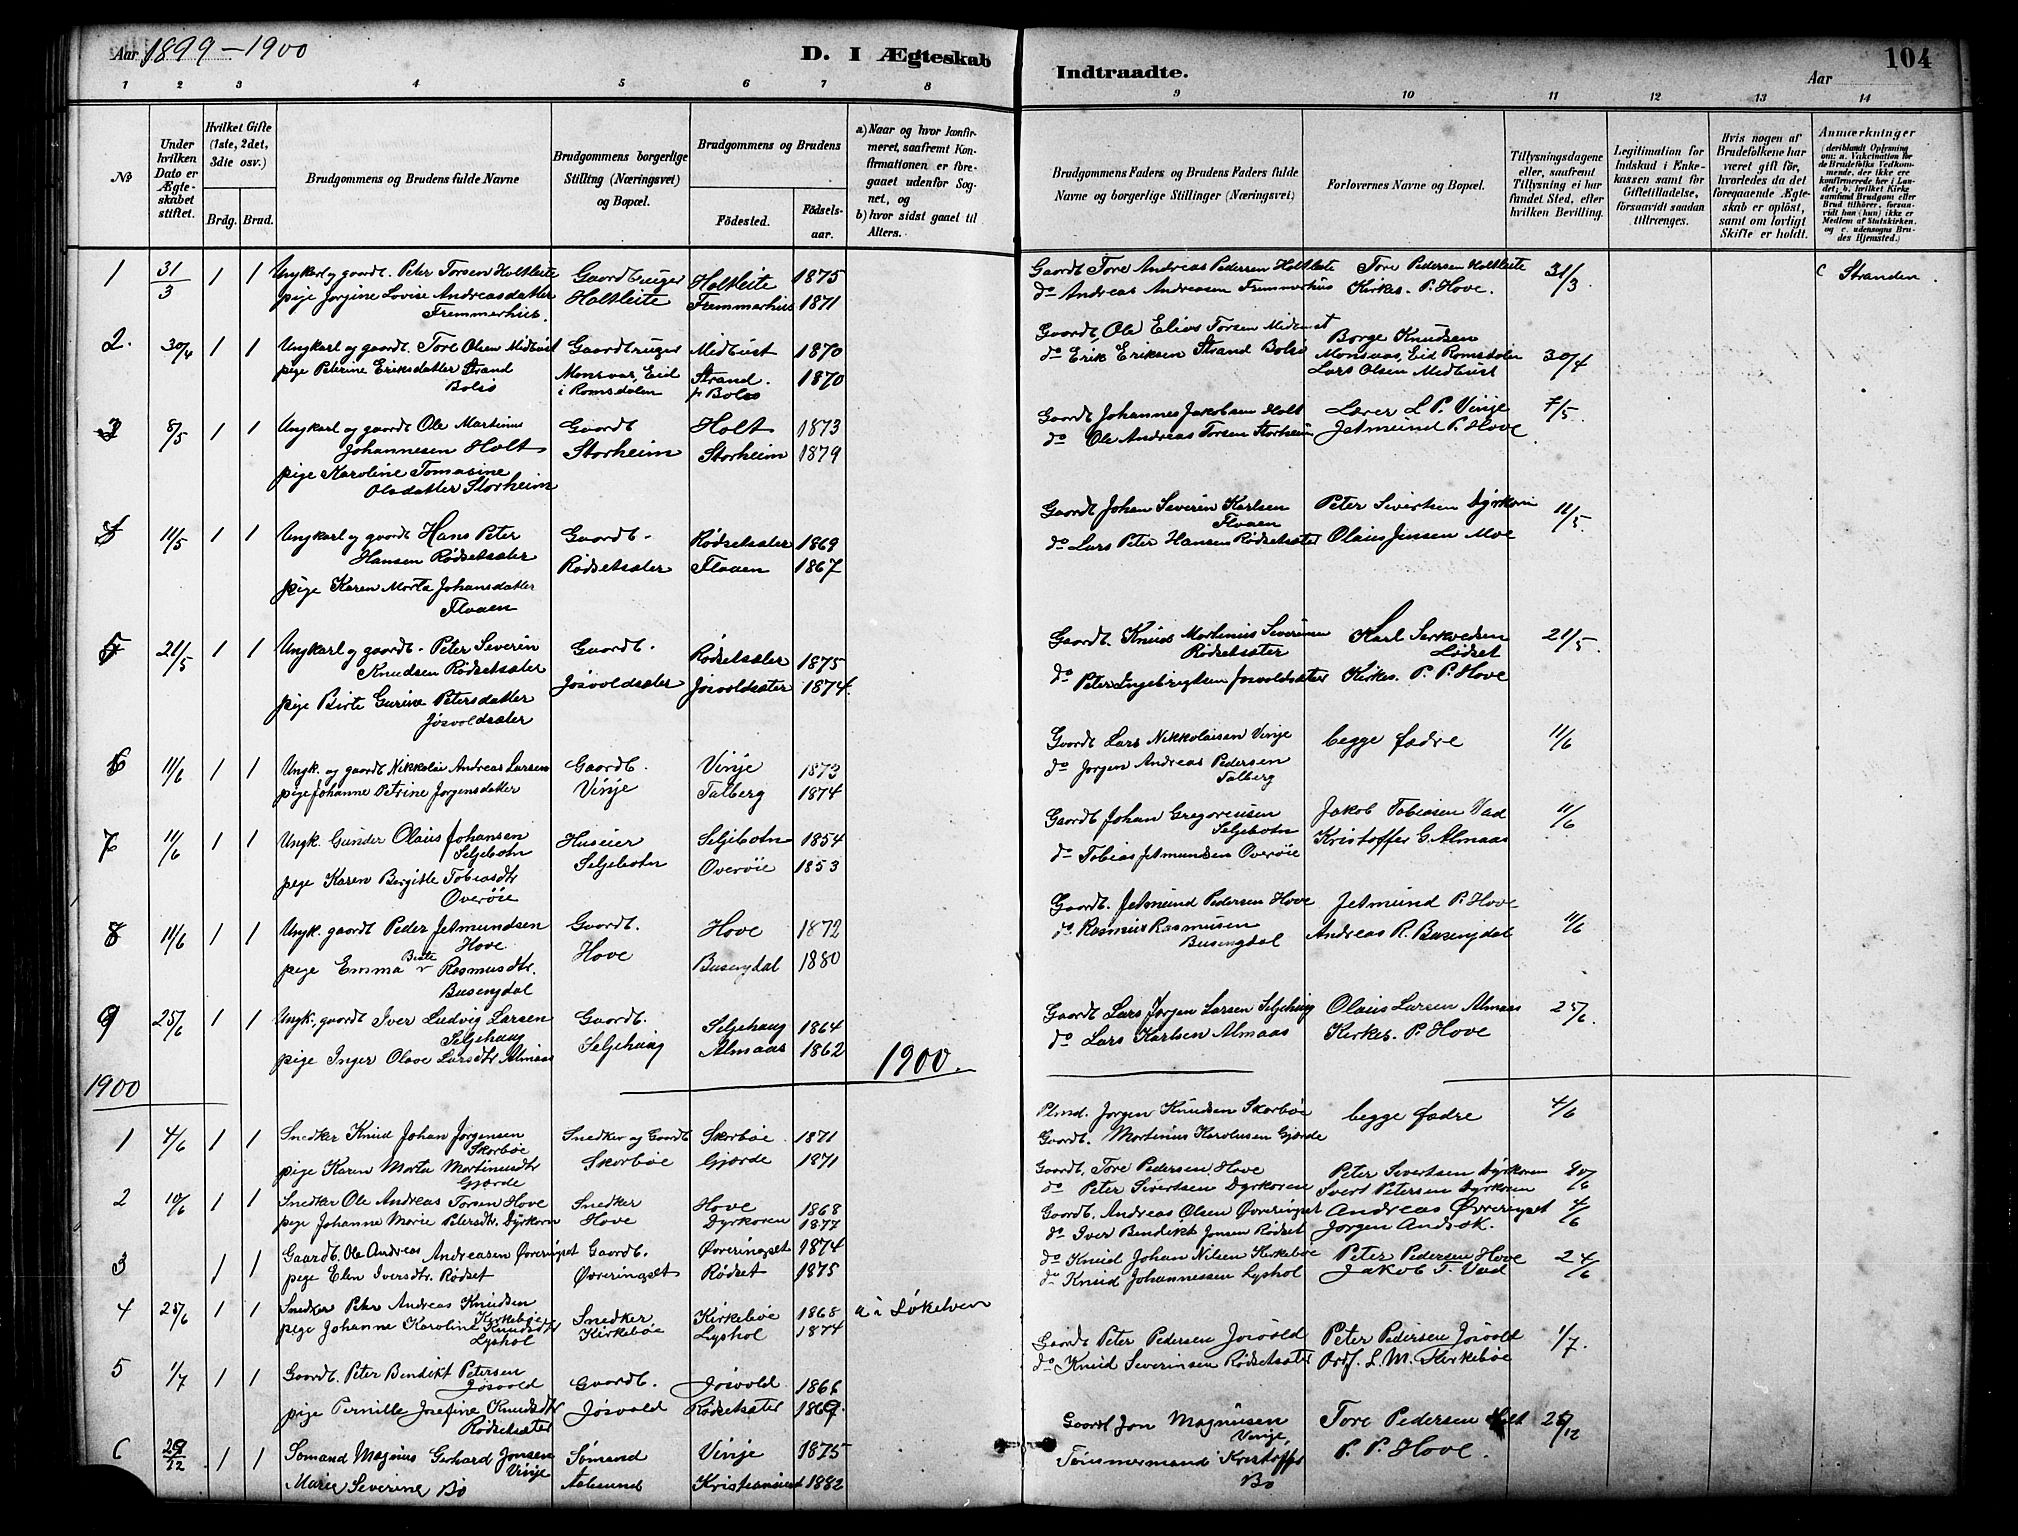 Aar 1899-1900
D. I Ægteskab
1 2 3 4 5 6 7 8
No
Under hvilken Dato er Ægteskabet stiftet.
Hvilket Gifte (1ste, 2det, 3die osv.)
Brdg. Brud.
Brudgommens og Brudens fulde Navne
Brudgommens borgerlige Stilling (Næringsvei) og Bopæl.
Brudgommens og Brudens
Födested. Födsels-aar.
a) Naar og hvor konfirmeret, saafremt Konfirmationen er foregaaet udenfor Sognet, og
b) hvor sidst gaaet til Alters.
1 31/3 1 1 Ungkarl og gaardt. Peter Torsen Holtleite Gaardbruger Holtleite 1875
pige Jorgine Lovise Andreasdatter Holtleite Fremmerhus 1871
Fremmerhus.
2. 30/4 1 1 Ungkarl og gaardt. Tore Olsen Midtust Gaardbruger Midtust 1870
pige Peterine Eriksdatter Strand Monsaas, Eid Strand. 1870
Bolsö i Romsdalen p Bolsö
3 8/5 1 1 Ungkarl og gaardt Ole Martinus Gaardt Holt 1873
Johannesen Holt Storheim Storheim 1879
pige Karoline Tomasine
Olsdatter Storheim
4 11/5 1 1 Ungkarl og gaardt Hans Peter Gaardt. Rødsetsæter 1869
Hansen Rødsetsæter Rødsetsæter Flaaen 1867
pige Karen Marta Johansdatter
Flaaen
5 21/5 1 1 Ungkarl og gaardt. Peter Severin Gaardt. Rødsetsæter 1875
Knudsen Rødsetsæter Jøsvoldsæter Jøsvoldsæter 1874
pige Birte Gurine Petersdatter
Jøsvoldsæter
6 11/6 1 1 Ungk. og gaardt Nikkolai Andreas Larsen Gaardt. Vinje 1873
pige Johanne Petrine Jørgensdatter Vinje Talberg 1874
7 11/6 1 1 Ungk. Gunder Olaus Johansen Huseier Seljebotn 1854
Seljebotn Seljebotn Overöie 1853
pige Karen Bergitte Tobiasdtr
Overöie
8 11/6 1 1 Ungk. gaardt Peder Jetmundsen Gaardt. Hove 1872
Hove Hove
pige Emma Beate Rasmusdtr. Busengdal 1880
Busengdal
9 25/6 1 1 Ungk. gaardt Iver Ludvig Larsen Gaardt. Seljehaug 1864
Seljehaug Seljehaug
pige Inger Olave Larsdtr Almaas Almaas 1862
1900
1900.
1 4/6 1 1 Snedker Knud Johan Jørgensen Snedker og Gaardt Skorböe 1871
Skorböe Skorböe
pige Karen Marta Martinusdtr Gjærde 1871
Gjærde
2 10/6 1 1 Snedker Ole Andreas Torsen Hove Snedker Hove 1868
pige Johanne Marie Petersdtr. Dyrkorn Hove Dyrkoren 1877
3 1 1 Gaardt. Ole Andreas Andreasen Øvreringset Gaardt. Øvreringset 1874
pige Elen Iversdtr. Rødset Øvreringset Rødset 1875
4 25/6 1 1 Snedker Peter Andreas Knudsen Snedker Kirkeböe 1868 a i Søkelven
Kirkeböe Kirkeböe
pige Johanne Karoline Knudsdtr Lyshol 1874
Lyshol
5 1/7 1 1 Gaardt. Peter Bendikt Petersen Gaardt. Jøsvold 1866
Jøsvold
pige Pernille Josefine Knudsdtr Jøsvold Rødsetsæter 1869.
Rødsetsæter
6 29/12 1 1 Sömand Magnus Gerhard Jonsen Sömand Vinje 1875
Vinje
Marie Severine Bö Aalesund Kristiansund 1882
Indtraadte.
Aar
104
9 10 11 12 13 14
Brudgommens Faders og Brudens Faders fulde Navne og borgerlige Stillinger (Næringsvei)
Forlovernes Navne og Bopæl.
Tillysningsdagene eller, saafremt Tillysning ei har fundet Sted, efter hvilken Bevilling.
Legitimation for Indskud i Enkekassen samt for Giftetilladelse, forsaavidt saadan tiltrænges.
Hvis nogen af Brudefolkene har været gift för, hvorledes da det foregaaende Ægteskab er oplöst, samt om lovligt Skifte er holdt.
Anmærkninger (deriblandt Oplysning om: a. Vakcination for de Brudefolks Vedkommende, der ikke ere konfirmerede her i Landet; b. hvilket Kirkesamfund Brudgom eller Brud tilhörer, forsavidt han (hun) ikke er Medlem af Statskirken, og c. udensogns Brudes Hjemsted.)
Gaardt Tore Andreas Pedersen Holtleite Tore Pedersen Holtleite 31/3 c Stranden.
do Andreas Andreasen Fremmerhus Kirkes. P. Hove.
Gaardt, Ole Elias Torsen Midtust Borge Knudsen
do Erik Eriksen Strand Bolsö Monsaas, Eid Romsdalen 30/4
Lars Olsen Midtust
Gaardt Johannes Jakobsen Holt Lærer L P. Vinje 7/5
do Ole Andreas Torsen Storheim Jetmund P. Hove
Gaardt Johan Severin Karlsen Peter Sivertsen Dyrkorn 11/5
Flaaen
do Lars Peter Hansen Rødsetsæter Olaus Jensen Moe
Gaardt. Knud Martinus Severinsen Karl 21/5
Rødsetsæter Lødset
do Peter Ingebrigtsen Jøsvoldsæter Kirkes. P. P. Hove
Gaardt Lars Nikkolaisen Vinje begge fædre 11/6
do Jørgen Andreas Pedersen
Talberg
Gaardt Johan Gregoriusen Jakob Tobiasen Vad 11/6
Seljebotn Kristoffer G. Almaas
do Tobias Jetmundsen Overöie
Gaardt. Jetmund Pedersen Hove Jetmund P. Hove
do Rasmus Rasmusen Andreas R. Busengdal 11/6
Busengdal
Gaardt Lars Jørgen Larsen Seljehaug Olaus Larsen Almaas 25/6.
do Lars Karlsen Almaas Kirkes. P. Hove
Plmd. Jørgen Knudsen Skorböe begge fædre 4/6
Gaardt. Martinus Karolusen Gjærde
Gaardt. Tore Pedersen Hove Peter Sivertsen Dyrkoren
do Peter Sivertsen Dyrkoren Sivert Petersen Dyrkoren
Gaardt. Andreas Olsen Øvreringset Andreas Øvreringset 4/6
do Iver Bendikt Jonsen Rødset Jørgen Andsæk.
do Knud Johan Nilsen Kirkeböe Peter Pedersen Hove 24/6
do Knud Johannessen Lyshol Jakob T. Vad
Gaardt Peter Pedersen Jøsvold Peter Pedersen Jøsvold 1/7.
do Knud Severinsen Rødsetsæter Ordf. L. M. Kirkeböe
Gaardt Jon Magnusen Tore Pedersen Holt 26/12
Vinje, P. P. Hove.
Tömmermand Kristoffer
Bö